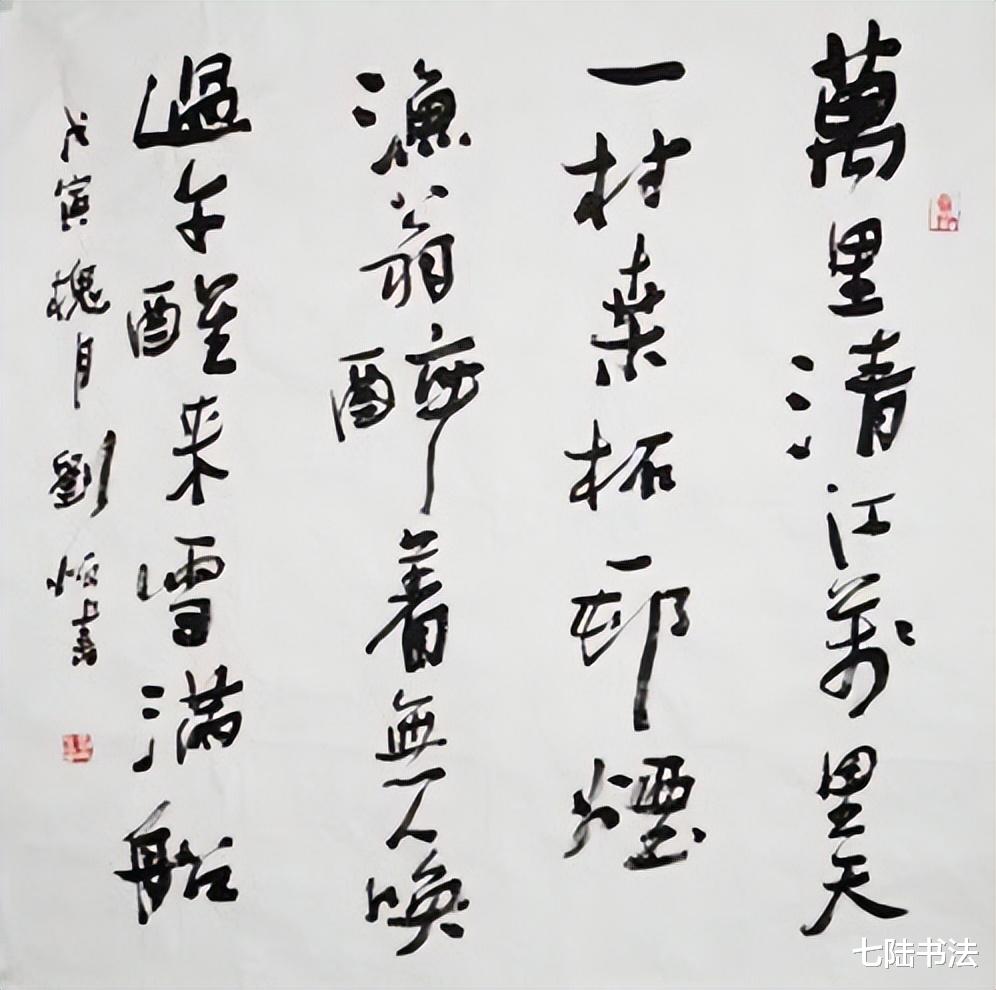 萬里清江萬里天
一村桑柘一邨煙
漁翁醉着無人喚
過午醒来雪滿船
戊寅槐月劉恒書
七陆书法